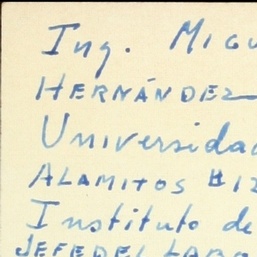 Ing. MIGU
HERNÁNDEZ
Universidad
ALAMITOS #12
Instituto de
JEFE DEL LABO